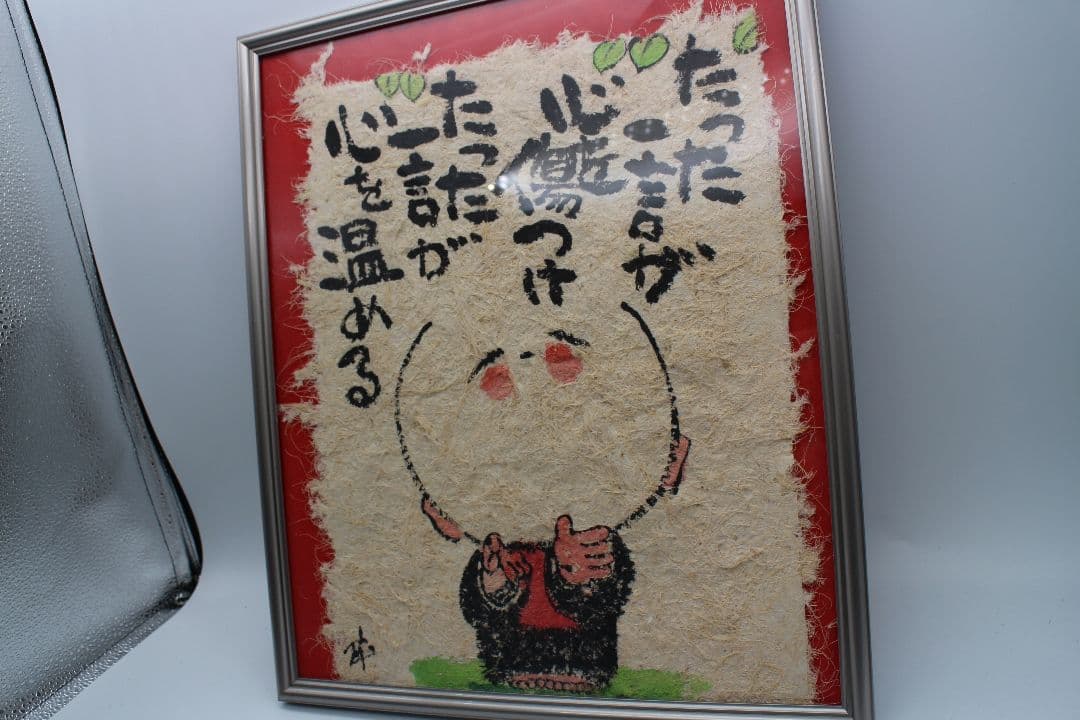 たった
一言が
心を
傷つけ
たった
一言が
心を温める